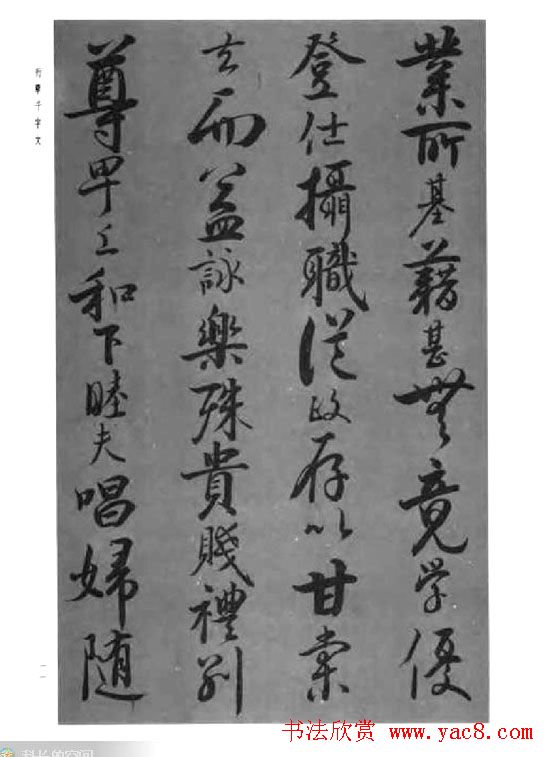 業所基藉甚無竟学優
登仕攝職從政存以甘棠
去而益詠樂殊貴賤禮别
尊卑上和下睦夫唱婦随
行草千字文
一一
书法欣赏
www.yac8.com
科长的空间